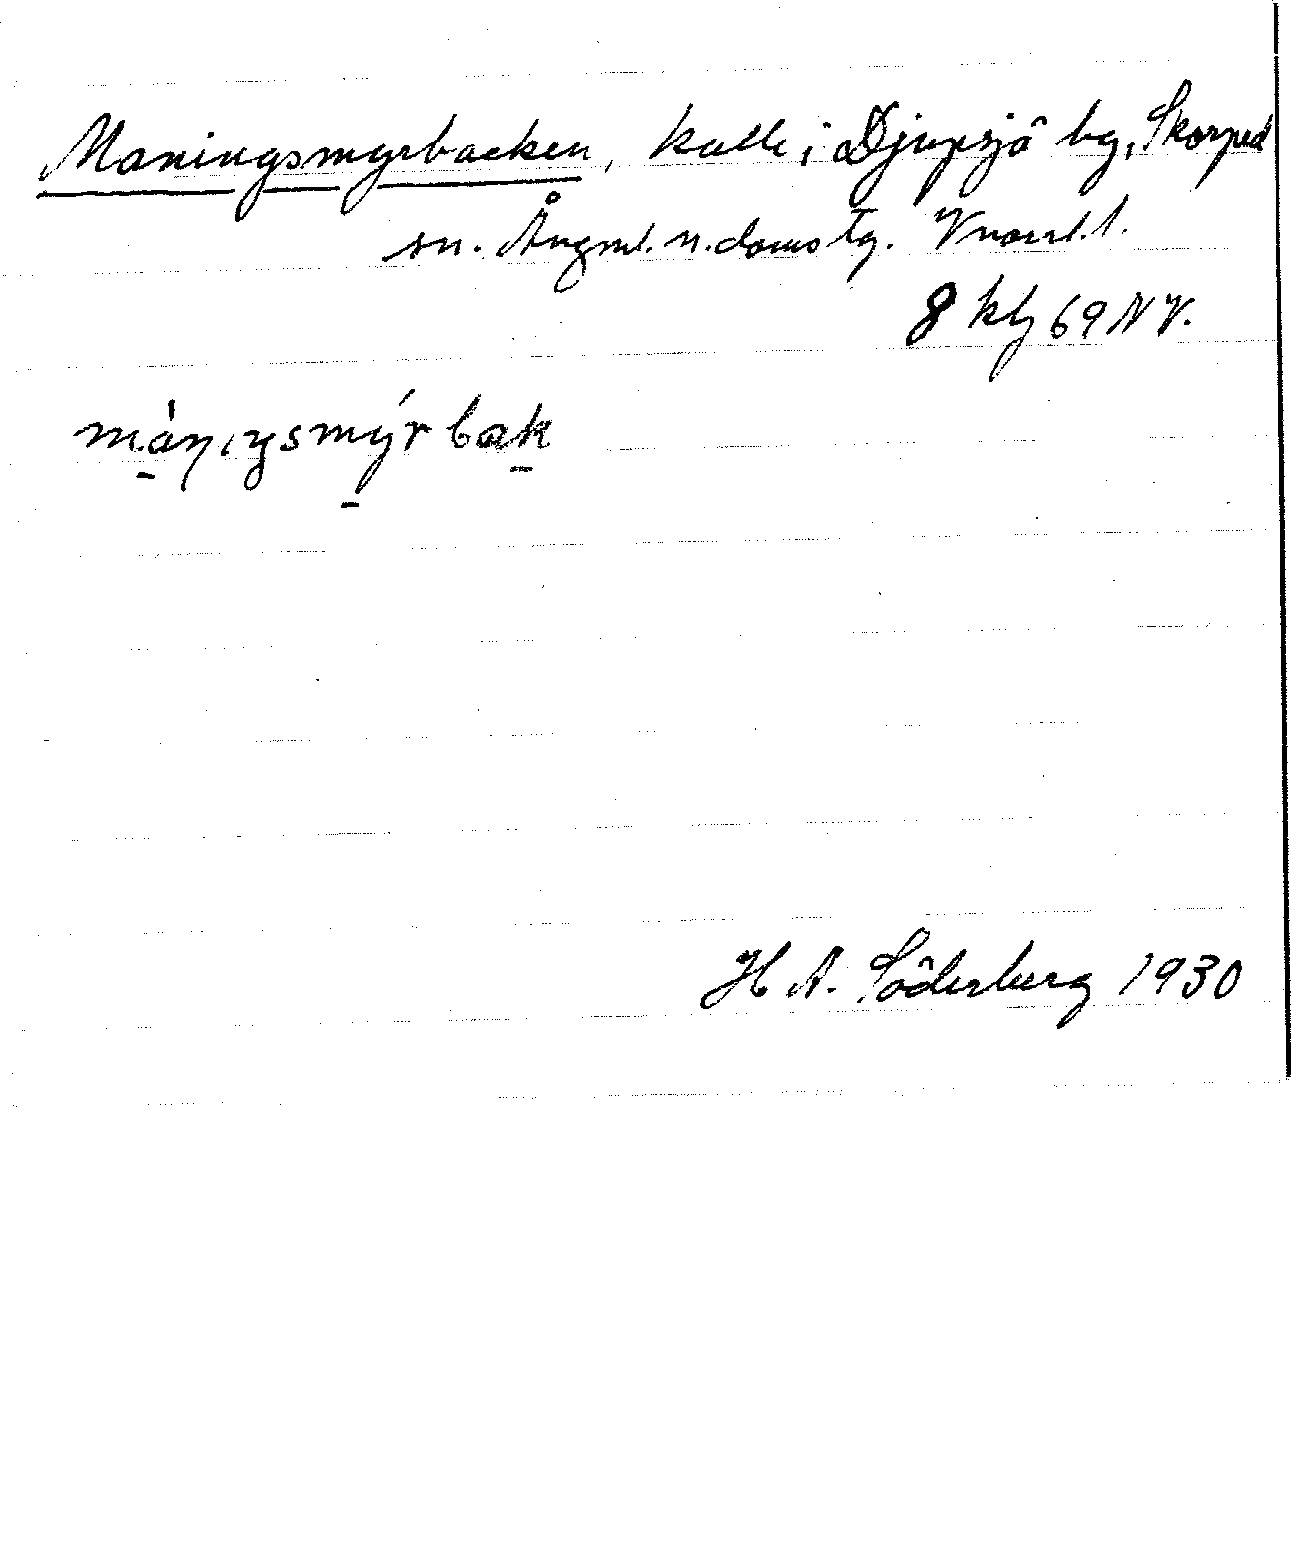 Maningsmyrbacken, kulle i Djupsjö bg, Skorped
sn. Ångml. n. domstg. Vnorrl. l.
8 kbg 69 NV.
mánıŋsmýrbak
H A. Söderberg 1930